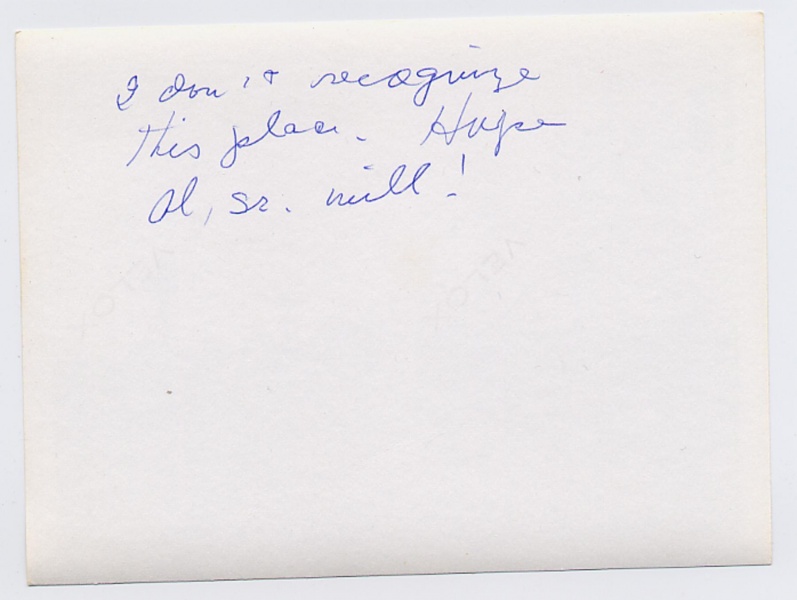 I don't recognize
this place. Hope
Al, Sr. will!
VELOX
VELOX